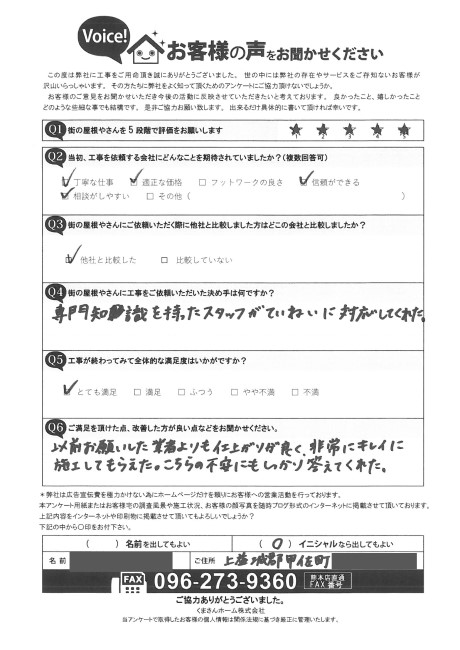 Voice!
お客様の声をお聞かせください
この度は弊社に工事をご用命頂き誠にありがとうございました。 世の中には弊社の存在やサービスをご存知ないお客様が
沢山いらっしゃいます。 その方たちに弊社をよく知って頂くためのアンケートにご協力頂けないでしょうか。
お客様のご意見をお聞かせいただき今後の活動に反映させていただきたいと考えております。 良かったこと、嬉しかったこと
どのような些細な事でも結構です。 是非ご協力お願い致します。 出来るだけ具体的に書いて頂ければ幸いです。
Q1 街の屋根やさんを5段階で評価をお願いします ★ ★ ★ ★ ★
1 2 3 4 5
Q2 当初、工事を依頼する会社にどんなことを期待されていましたか?(複数回答可)
☑ 丁寧な仕事 ☑ 適正な価格 □ フットワークの良さ ☑ 信頼ができる
☑ 相談がしやすい □ その他 ( )
Q3 街の屋根やさんにご依頼いただく際に他社と比較しました方はどこの会社と比較しましたか?
☑ 他社と比較した □ 比較していない
Q4 街の屋根やさんに工事をご依頼いただいた決め手は何ですか?
専門知識を持ったスタッフがていねいに対応してくれた。
Q5 工事が終わってみて全体的な満足度はいかがですか?
☑ とても満足 □ 満足 □ ふつう □ やや不満 □ 不満
Q6 ご満足を頂けた点、改善した方が良い点などをお聞かせください。
以前お願いした業者よりも仕上がりが良く、非常にキレイに
施工してもらえた。こちらの不安にもしっかり答えてくれた。
＊弊社は広告宣伝費を極力かけない為にホームページだけを頼りにお客様への営業活動を行っております。
本アンケート用紙またはお客様宅の調査風景や施工状況、お客様の顔写真を随時ブログ形式のインターネットに掲載させて頂いております。
上記内容をインターネットや印刷物に掲載させて頂いてもよろしいでしょうか?
下記の中から〇印をお付下さい。
( ) 名前を出してもよい ( 〇 ) イニシャルなら出してもよい
名前 ご住所 上益城郡甲佐町
FAX 096-273-9360 熊本店直通 FAX 番号
ご協力ありがとうございました。
くまさんホーム株式会社
当アンケートで取得したお客様の個人情報は関係法規に基づき厳正に管理いたします。